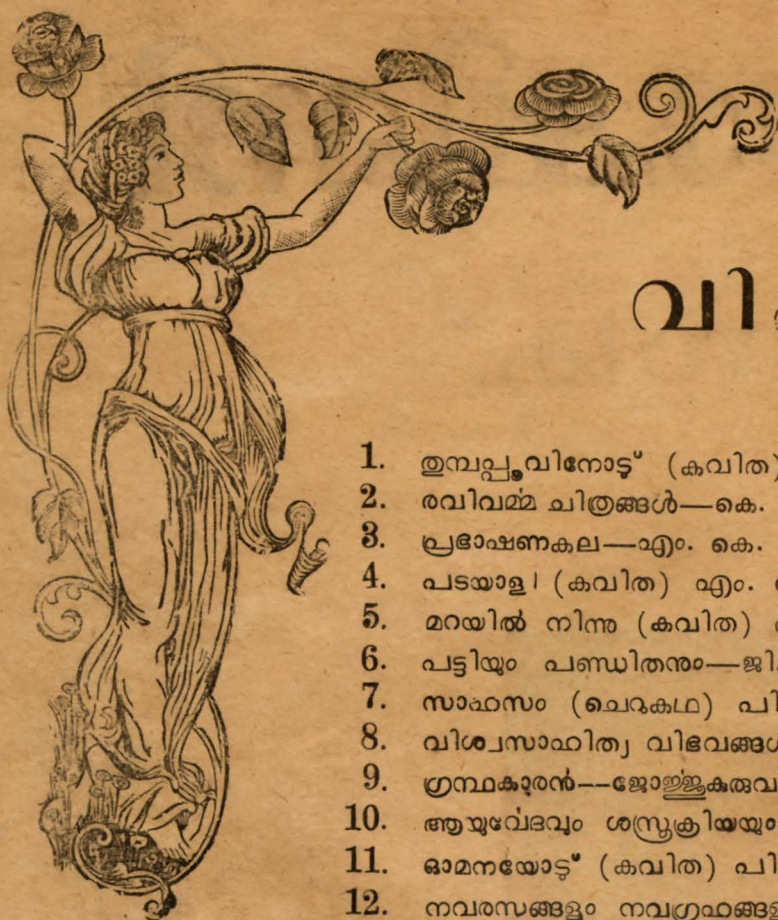 1. തുമ്പപ്പൂവിനോടു് (കവിത)
2. രവിവൎമ്മ ചിത്രങ്ങൾ—കെ.
3. പ്രഭാഷണകല—എം. കെ.
4. പടയാളി (കവിത) എം.
5. മറയിൽ നിന്നു (കവിത)
6. പട്ടിയും പണ്ഡിതനും—ജി.
7. സാഹസം (ചെറുകഥ) പി
8. വിശ്വസാഹിത്യ വിഭവങ്ങൾ
9. ഗ്രന്ഥകാരൻ—ജോൎജ്ജുകുരുവ
10. ആയുൎവേദവും ശസ്ത്രക്രിയയും
11. ഓമനയോടു് (കവിത) പി
12. നവരസങ്ങളും നവഗ്രഹങ്ങളു